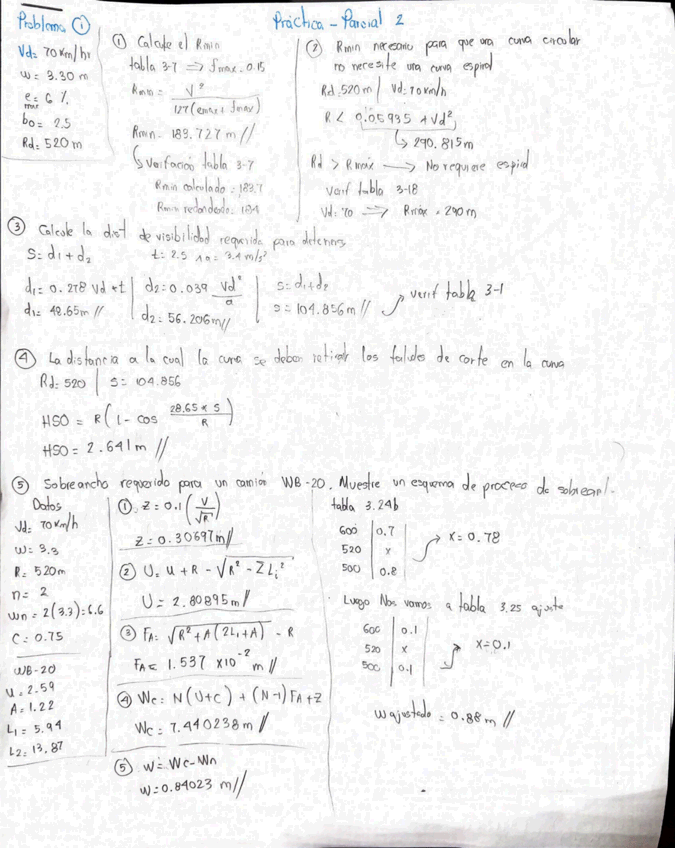 Práctica - Parcial 2
Problema ①
Vd= 70 Km/hr
w= 3.30 m
e max = 6 %
bo= 2.5
Rd= 520 m
① Calcule el Rmin
tabla 3-7 ⇒ fmax. 0.15
Rmin= V² / 127(emax + fmax)
Rmin. 183.727 m //
↳ Verificación tabla 3-7
Rmin calculado = 183.7
Rmin redondeado: 184
② Rmin necesario para que una curva circular
no necesite una curva espiral
Rd. 520m | Vd: 70Km/h
R < 0.05935 * Vd²
↳ 290.815m
Rd > Rmáx → No requiere espiral
verif tabla 3-18
Vd= 70 ⇒ Rmáx = 290m
③ Calcule la dist de visibilidad requerida para detenerse
S= d1 + d2 t= 2.5 a= 3.4 m/s²
d1= 0.278 Vd * t | d2= 0.039 Vd² / a | S= d1+d2
d1= 48.65m // d2= 56.206m// S= 104.856m // verif tabla 3-1
④ La distancia a la cual la curva se deben retirar los taludes de corte en la curva
Rd= 520 | S= 104.856
HSO = R(1 - cos 28.65 * S / R)
HSO = 2.641m //
⑤ Sobreancho requerido para un camión WB-20. Muestre un esquema de proceso de
Datos
Vd= 70Km/h
w= 3.3
R= 520m
n= 2
wn= 2(3.3)=6.6
C= 0.75
WB-20
u= 2.59
A= 1.22
L1= 5.94
L2= 13.87
① Z= 0.1(V / √R)
Z= 0.30697m//
② U= u + R - √R² - ΣLi²
U= 2.80895m/
③ FA= √R² + A(2L1+A) - R
FA= 1.537 x10⁻² m //
④ Wc= N(U+C) + (N-1)FA+Z
Wc= 7.440238m //
⑤ w= Wc-Wn
w= 0.84023 m//
tabla 3.24b
600 | 0.7
520 | x → x= 0.78
500 | 0.8
Luego Nos vamos a tabla 3.25 ajuste
600 | 0.1
520 | x → x=0.1
500 | 0.1
w ajustado = 0.88 m //